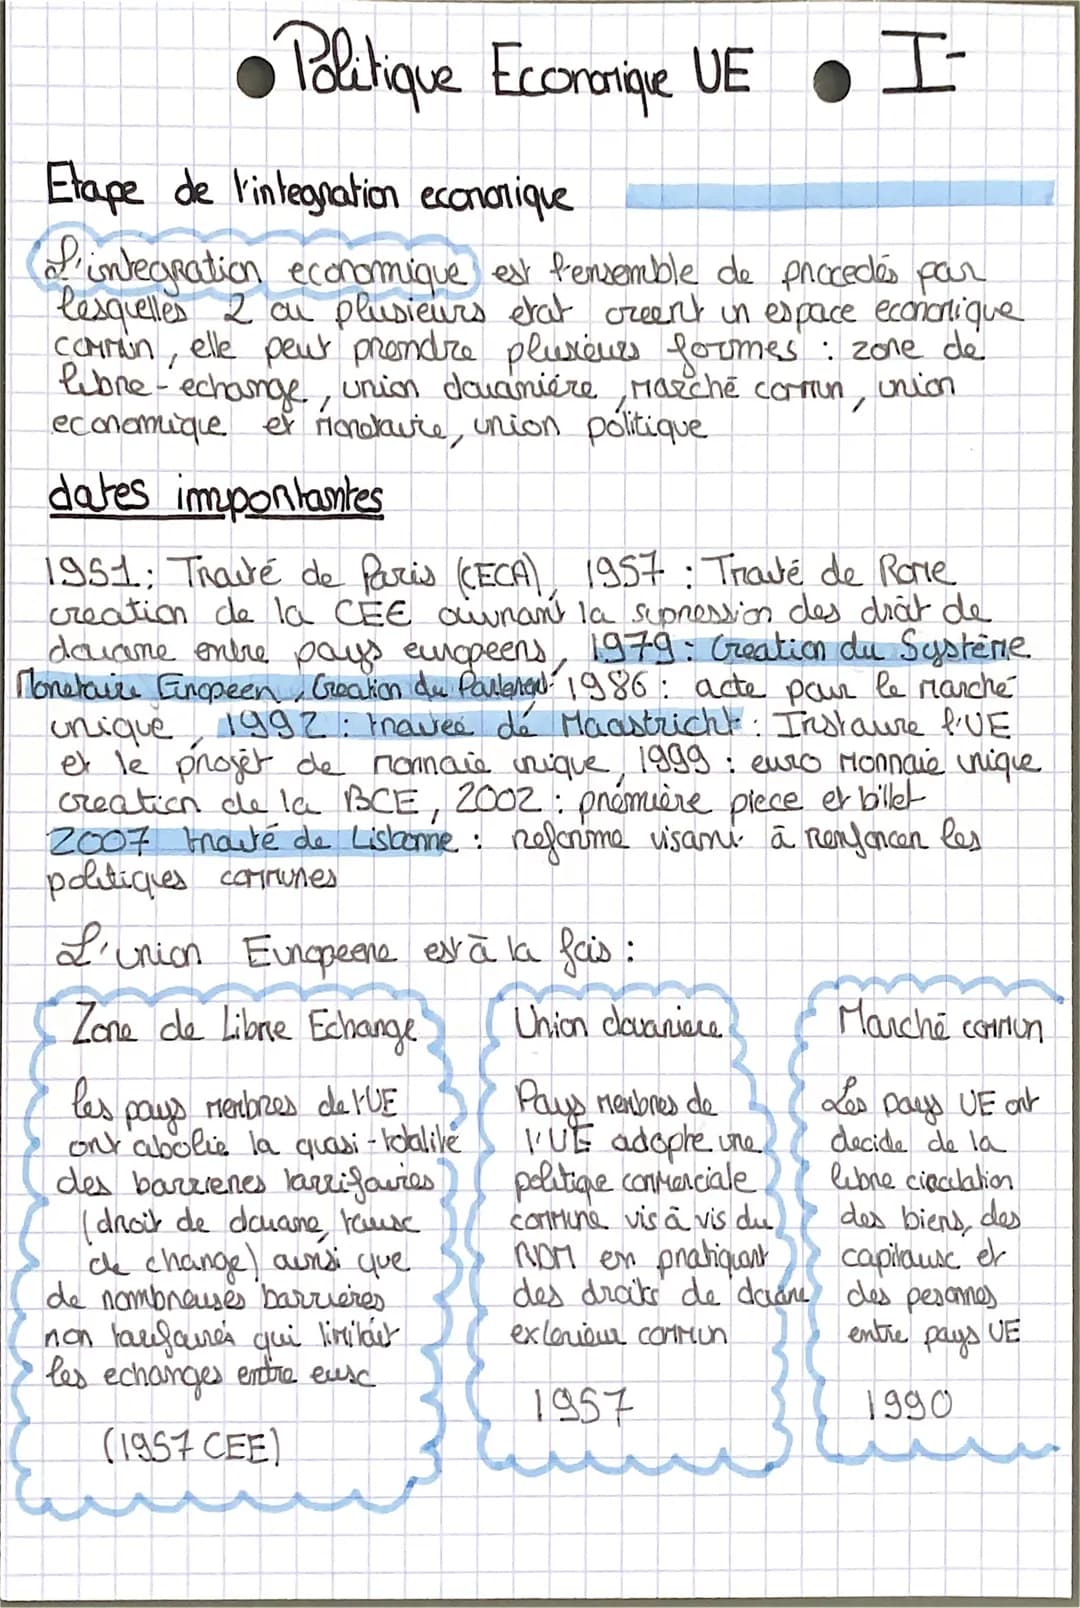 Politique Economique UE I-
Etape de l'integration economique
L'integration economique est l'ensemble de procedés par
lesquelles 2 ou plusieurs etat creent un espace economique
commun, elle peut prendre plusieurs formes : zone de
libre-echange, union douanière, Marché commun, union
economique et Monetaire, union politique
dates importantes
1951: Traité de Paris (CECA), 1957 : Traité de Rome
creation de la CEE ouvrant la supression des droit de
douane entre pays europeens, 1979 : Creation du Système
Monetaire Europeen, Creation du 1986 : acte pour le marché
unique, 1992 : traiteé de Maastricht : Instaure l'UE
et le projet de monnaie unique, 1999 : euro Monnaie unique
creation de la BCE, 2002 : première piece et billet
2007 traité de Lisbonne : reforme visant à renforcer les
politiques communes
L'union Europeene est à la fois :
Zone de Libre Echange
les pays membres de l'UE
ont abolie la quasi-totalité
des barrieres tarrifaires
(droit de douane, taux
de change) ainsi que
de nombreuses barrières
non taufaires qui limitait
les echanges entre eux
(1957 CEE)
Union douaniere
Pays membres de
l'UE adopte une
politique commerciale
commune vis à vis du
RDM en pratiquant
des droits de douane
exterieur commun
1957
Marché commun
Les pays UE ont
decide de la
libre circulation
des biens, des
capitaux et
des pesonnes
entre pays UE
1990